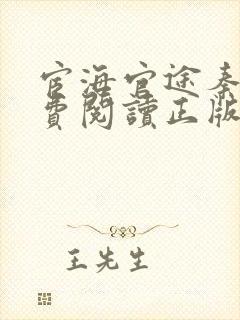 宦海官途秦
費閱讀正版
王先生